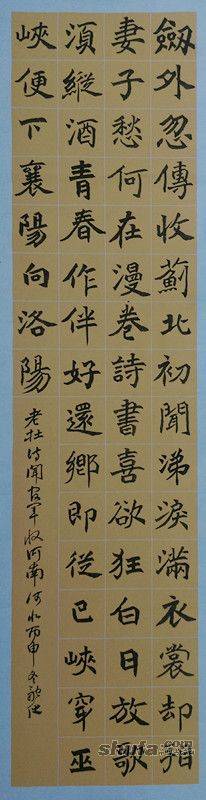 劒外忽傳收薊北初聞涕淚滿衣裳却看
妻子愁何在漫卷詩書喜欲狂白日放歌
須縱酒青春作伴好還鄉即從巴峽穿巫
峽便下襄陽向洛陽
老杜诗聞官军收河南河北丙申冬